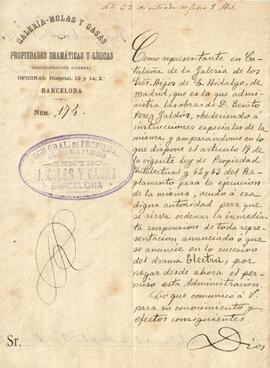 GALERIA-MOLAS Y CASAS
PROPIEDADES DRAMÁTICAS Y LÍRICAS
ADMINISTRACIÓN GENERAL
OFICINAS: Hospital, 12 y 14, 2.º
BARCELONA
Núm. 174.
CENTRO
J. MOLAS Y CASAS
BARCELONA
Como representante en Ca-
taluña de la Galeria de los
Sres. Hijos de E. Hidalgo, de
Madrid, que es la que admi-
nistra las obras de D. Benito
Perez Galdós, obedeciendo á
instrucciones especiales de la
misma y amparándome en lo
que dispone el articulo 19 de
la vigente Ley de Propiedad
Intelectual y 62 y 63 del Re-
glamento para la ejecucion
de la misma, acudo á esa
digna autoridad para que
se sirva ordenar la inmedia-
ta suspension de toda repre-
sentacion anunciada ó que
se anuncie en lo sucesivo
del drama Electra, por
negar desde ahora el per-
miso esta Administracion.
Lo que comunico á V.
para su conocimiento y
efectos consiguientes.
Dios
Sr.